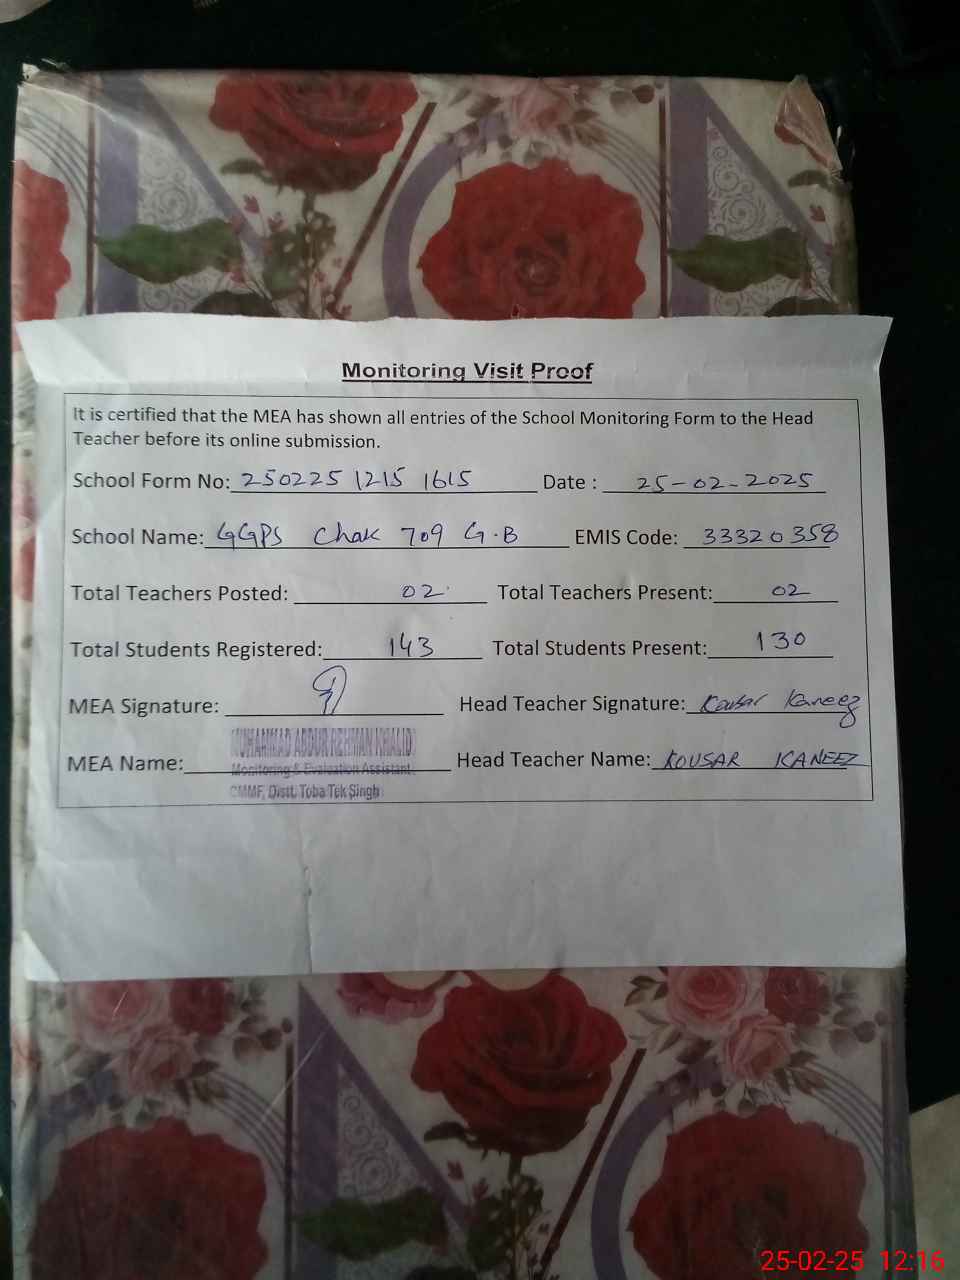 Monitoring Visit Proof
It is certified that the MEA has shown all entries of the School Monitoring Form to the Head
Teacher before its online submission.
School Form No: 250225 1215 1615 Date : 25-02-2025
School Name: GGPS Chak 709 G.B EMIS Code: 33320358
Total Teachers Posted: 02 Total Teachers Present: 02
Total Students Registered: 143 Total Students Present: 130
MEA Signature: Head Teacher Signature: Kousar Kaneez
MUHAMMAD ABDUR REHMAN KHALID
MEA Name: Monitoring & Evaluation Assistant Head Teacher Name: KOUSAR KANEEZ
CMMF, Distt. Toba Tek Singh
25-02-25 12:16